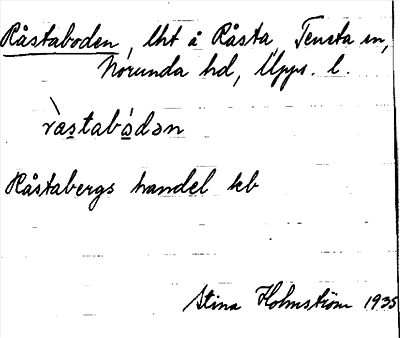 Råstaboden, lht å Råsta, Tensta sn,
Norunda hd, Upps. l.
ràstabòdən
Råstabergs handel kb
Stina Holmström 1935